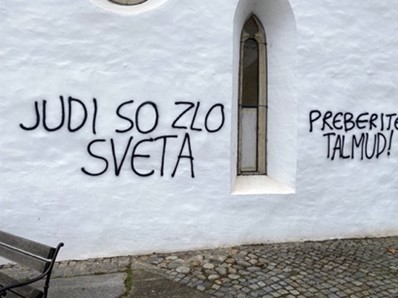 JUDI SO ZLO
SVETA
PREBERITE
TALMUD!